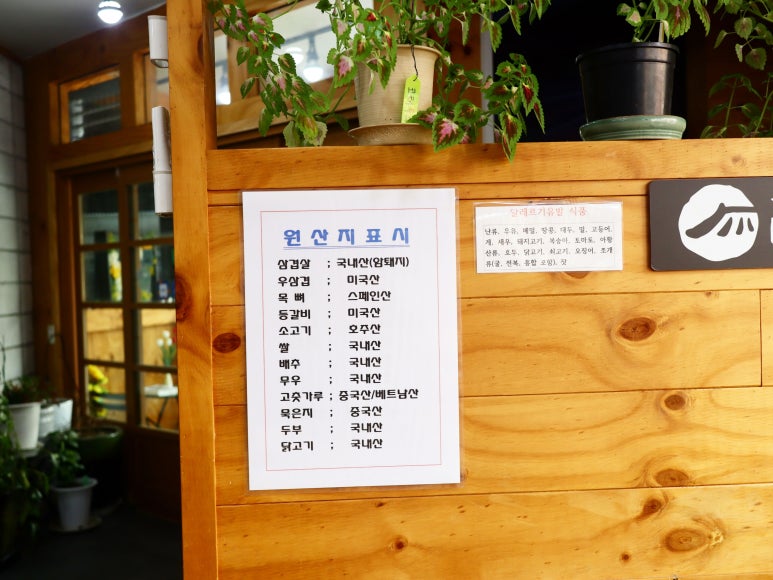 원산지표시
삼겹살 ; 국내산(암퇘지)
우삼겹 ; 미국산
목뼈 ; 스페인산
등갈비 ; 미국산
소고기 ; 호주산
쌀 ; 국내산
배추 ; 국내산
무우 ; 국내산
고춧가루 ; 중국산/베트남산
묵은지 ; 중국산
두부 ; 국내산
닭고기 ; 국내산
알레르기유발 식품
난류, 우유, 메밀, 땅콩, 대두, 밀, 고등어,
게, 새우, 돼지고기, 복숭아, 토마토, 아황
산류, 호두, 닭고기, 쇠고기, 오징어, 조개
류(굴, 전복, 홍합 포함), 잣